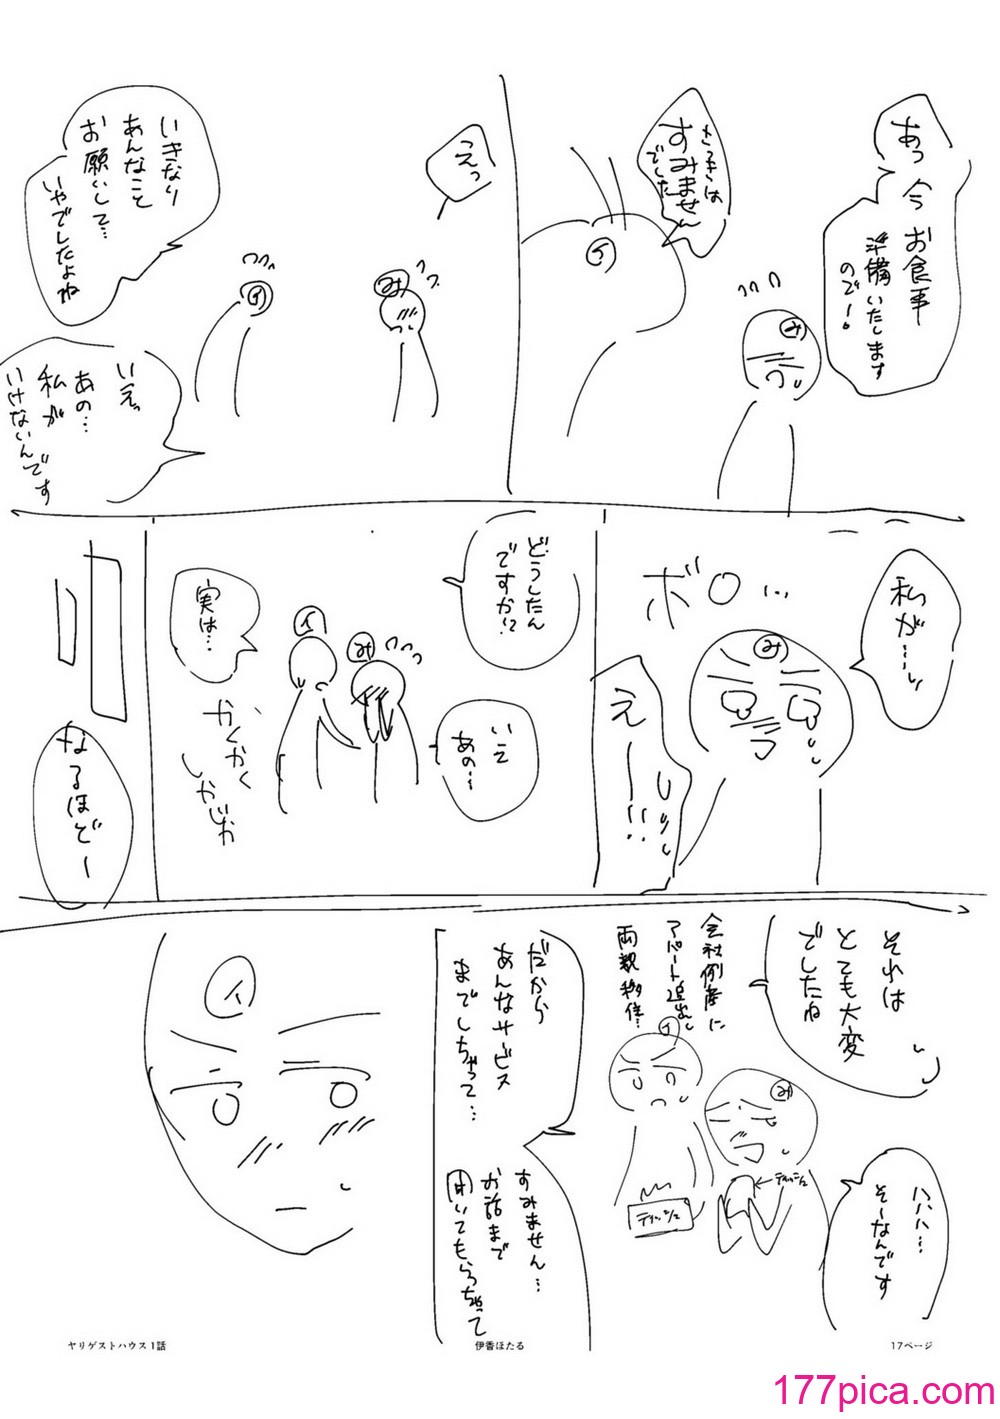 あっ今お食事
準備いたします
のでー!
さっきは
すみません
でした
み
イ
えっ
いきなり
あんなこと
お願いして…
いやでしたよね
み
イ
いえっ
あの…
私が
いけないんです
私が…
ボロ…
み
えーーー!!
どうしたん
ですか!?
いえ
あの…
イ
み
実は…
かくかく
しかじか
なるほどー
それは
とても大変
でしたね
会社倒産に
アパート追出し
両親移住…
イ
み
ティッシュ
ティッシュ
ハハハ…
そーなんです
だから
あんなサービス
までしちゃって…
すみません…
お話まで
聞いてもらっちゃって
イ
ヤリゲストハウス1話
伊香ほたる
17ページ
177pica.com